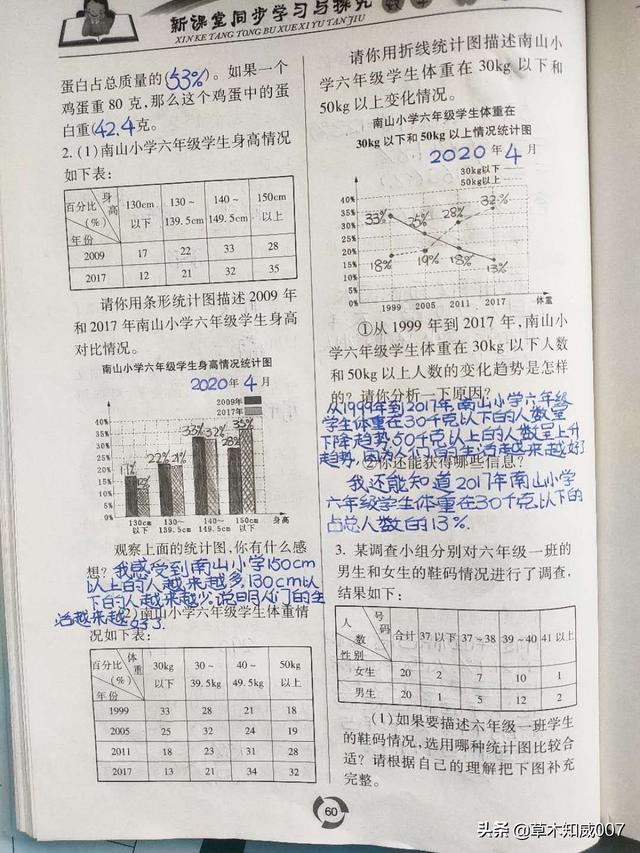 新课堂同步学习与探究
XIN KE TANG TONG BU XUE XI YU TAN JIU
蛋白占总质量的(53%)。如果一个
鸡蛋重 80 克,那么这个鸡蛋中的蛋
白重(42.4克。
2. (1)南山小学六年级学生身高情况
如下表:
百分比(%) 身高 年份 130cm以下 130~139.5cm 140~149.5cm 150cm以上
2009 17 22 33 28
2017 12 21 32 35
请你用条形统计图描述 2009 年
和 2017 年南山小学六年级学生身高
对比情况。
南山小学六年级学生身高情况统计图
2020年4月
2009年
2017年
40%
35%
30%
25%
20%
15%
10%
5%
0%
17% 12% 22% 21% 33% 32% 28% 35%
130cm以下 130~139.5cm 140~149.5cm 150cm以上 身高
观察上面的统计图,你有什么感
想?我感受到南山小学150cm
以上的人越来越多,130cm以
下的人越来越少,说明人们的生
活越来越好了。
(2)南山小学六年级学生体重情
况如下表:
百分比(%) 体重 年份 30kg以下 30~39.5kg 40~49.5kg 50kg以上
1999 33 28 21 18
2005 25 32 24 19
2011 18 23 31 28
2017 13 21 34 32
请你用折线统计图描述南山小
学六年级学生体重在 30kg 以下和
50kg 以上变化情况。
南山小学六年级学生体重在
30kg 以下和 50kg 以上情况统计图
2020年4月
30kg以下
50kg以上
40%
35%
30%
25%
20%
15%
10%
5%
0%
33% 25% 28% 32%
18% 19% 18% 13%
1999 2005 2011 2017 体重
①从 1999 年到 2017 年,南山小
学六年级学生体重在 30kg 以下人数
和 50kg 以上人数的变化趋势是怎样
的?请你分析一下原因?
从1999年到2017年,南山小学六年级
学生体重在30千克以下的人数呈
下降趋势,50千克以上的人数呈上升
趋势,因为人们的生活越来越好了
②你还能获得哪些信息?
我还能知道2017年南山小学
六年级学生体重在30千克以下的
占总人数的13%.
3. 某调查小组分别对六年级一班的
男生和女生的鞋码情况进行了调查,
结果如下:
人数 号码 性别 合计 37 以下 37~38 39~40 41 以上
女生 20 2 7 10 1
男生 20 1 5 12 2
(1)如果要描述六年级一班学生
的鞋码情况,选用哪种统计图比较合
适?请根据自己的理解把下图补充
完整。
60
头条 @草木知威007